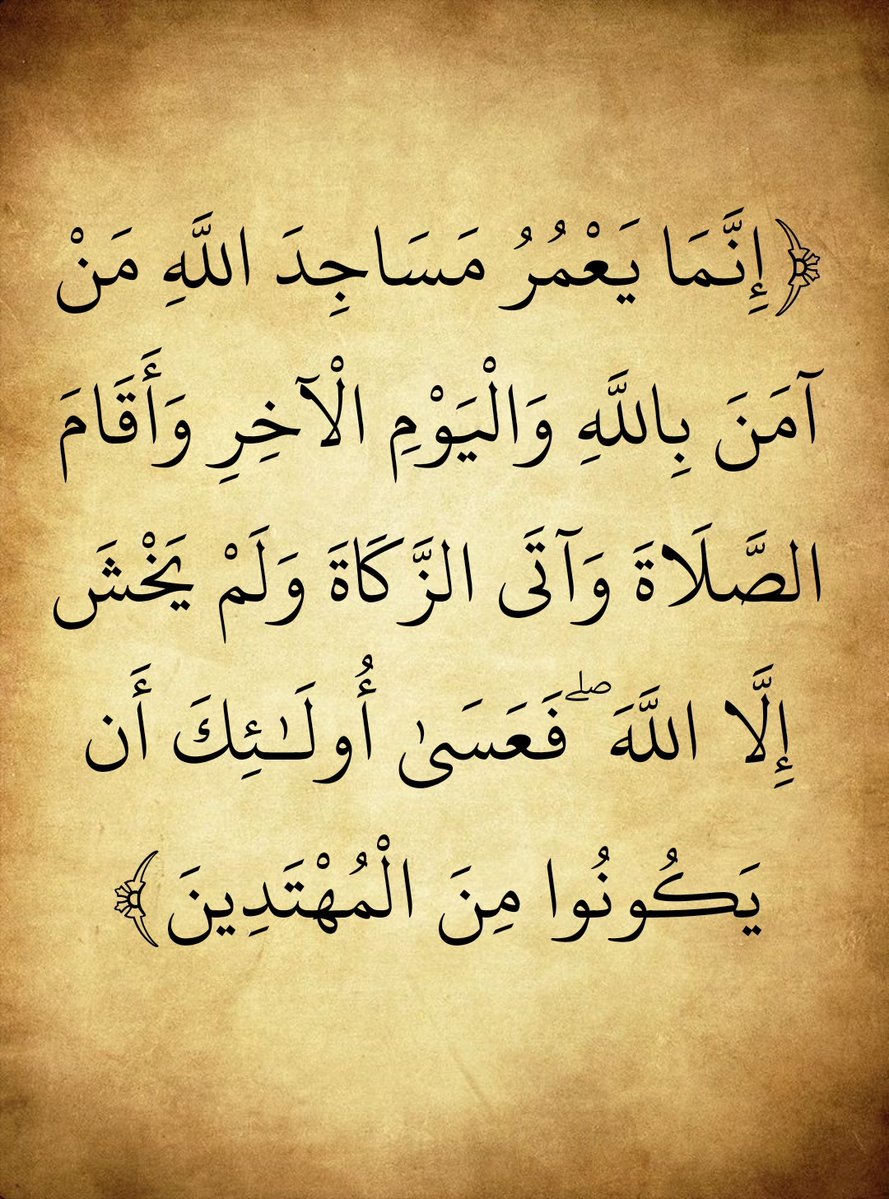 ﴿إِنَّمَا يَعْمُرُ مَسَاجِدَ اللَّهِ مَنْ
آمَنَ بِاللَّهِ وَالْيَوْمِ الْآخِرِ وَأَقَامَ
الصَّلَاةَ وَآتَى الزَّكَاةَ وَلَمْ يَخْشَ
إِلَّا اللَّهَ ۖ فَعَسَىٰ أُولَـٰئِكَ أَن
يَكُونُوا مِنَ الْمُهْتَدِينَ﴾